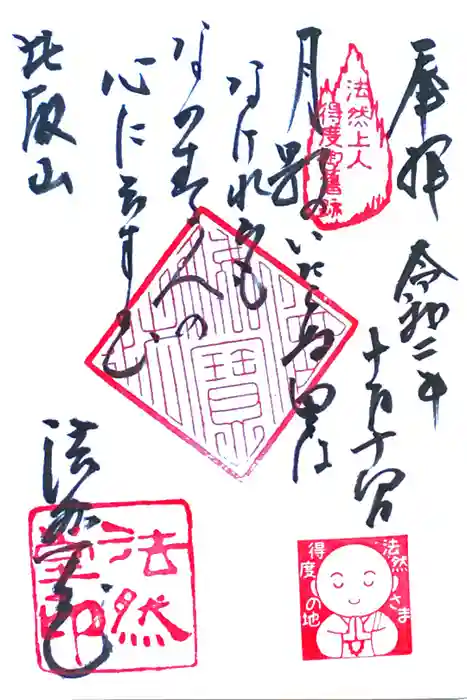 奉拝
令和二年
十月
法然上人
得度御舊跡
月影のいたらぬ里は
なけれども
ながむる人の
心にぞすむ
佛法僧寶
比叡山
法然堂
法然
堂印
法然さま
得度の地